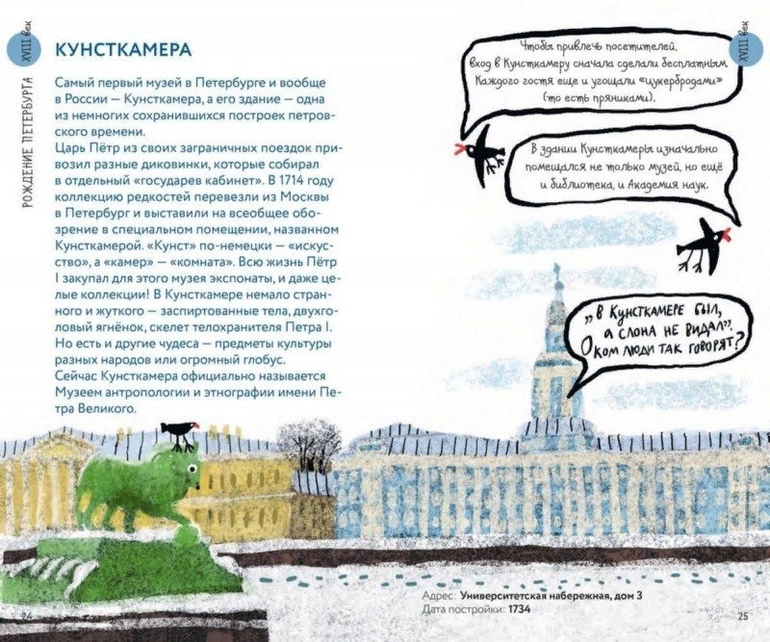 XVIII век
РОЖДЕНИЕ ПЕТЕРБУРГА
КУНСТКАМЕРА
Самый первый музей в Петербурге и вообще
в России — Кунсткамера, а его здание — одна
из немногих сохранившихся построек петров-
ского времени.
Царь Пётр из своих заграничных поездок при-
возил разные диковинки, которые собирал
в отдельный «государев кабинет». В 1714 году
коллекцию редкостей перевезли из Москвы
в Петербург и выставили на всеобщее обо-
зрение в специальном помещении, названном
Кунсткамерой. «Кунст» по-немецки — «искус-
ство», а «камер» — «комната». Всю жизнь Пётр
I закупал для этого музея экспонаты, и даже це-
лые коллекции! В Кунсткамере немало стран-
ного и жуткого — заспиртованные тела, двухго-
ловый ягнёнок, скелет телохранителя Петра I.
Но есть и другие чудеса — предметы культуры
разных народов или огромный глобус.
Сейчас Кунсткамера официально называется
Музеем антропологии и этнографии имени Пе-
тра Великого.
24
Чтобы привлечь посетителей,
вход в Кунсткамеру сначала сделали бесплатным.
Каждого гостя еще и угощали «цукербродами»
(то есть пряниками).
XVIII век
В здании Кунсткамеры изначально
помещался не только музей, но ещё
и библиотека, и Академия наук.
„В Кунсткамере был,
а слона не видал".
О ком люди так говорят?
Адрес: Университетская набережная, дом 3
Дата постройки: 1734
25